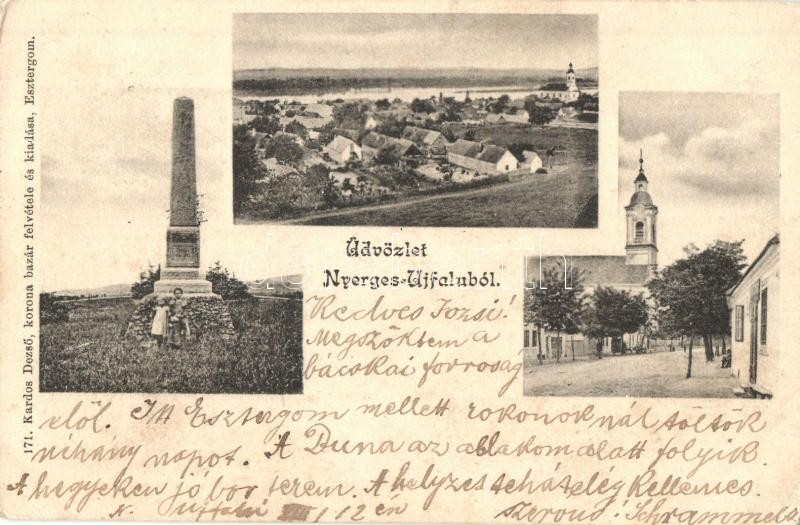 171. Kardos Dezső, korona bazár felvétele és kiadása, Esztergom.
Üdvözlet
"Nyerges-Ujfaluból."
Kedves Jozsi!
Megszöktem a
bácskai forroság
elöl. Itt Esztergom mellett rokonoknál töltök
néhány napot. A Duna az ablakom alatt folyik.
A hegyeken jó bor terem. A helyzet tehát elég kellemes.
N. Ujfalu VIII/12 én Szervus: Schrammel